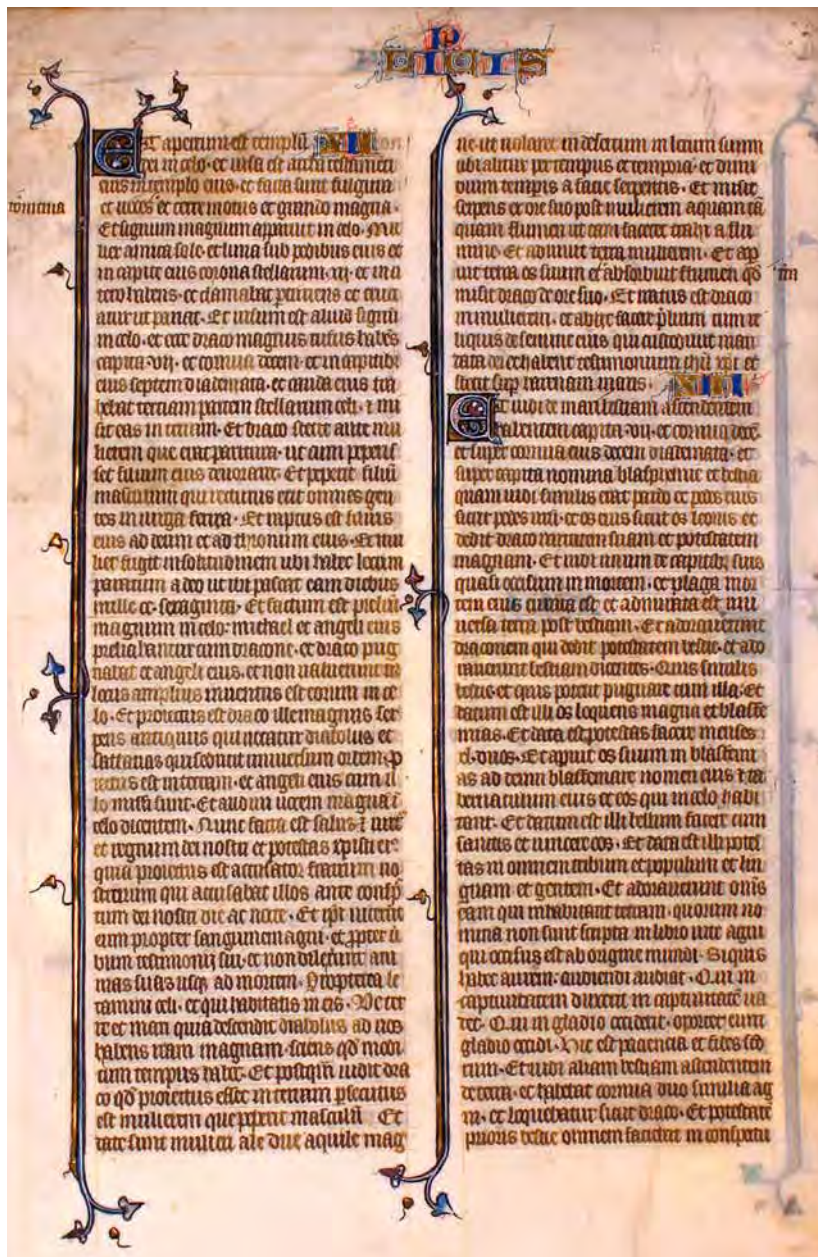 P
LICIS
ET apertum est templū XII
dei in celo· et uisa est archa testamēti
eius in templo eius· et facta sunt fulgura
et uoces et terre motus et grando magna·
Et signum magnum apparuit in celo· Mu
lier amicta sole· et luna sub pedibus eius et
in capite eius corona stellarum ·xij· et in u
tero habens· et clamabat parturiens et cruci
atur ut pariat· Et uisum est aliud signū
in celo· et ecce draco magnus rufus habēs
capita ·vij· et cornua decem· et in capitibꝫ
eius septem diademata· et cauda eius tra
hebat tertiam partem stellarum celi· ⁊ mi
sit eas in terram· Et draco stetit ante mu
lierem que erat paritura· ut cum peperis
set filium eius deuoraret· Et peperit filiū
masculum qui recturus erit omnes gen
tes in uirga ferrea· Et raptus est filius
eius ad deum et ad thronum eius· Et mu
lier fugit in solitudinem ubi habet locum
paratum a deo ut ibi pascat eam diebus
mille cc· sexaginta· Et factum est preliū
magnum in celo· michael et angeli eius
preliabantur cum dracone· et draco pug
nabat et angeli eius· et non ualuerunt neque
locus amplius inuentus est eorum in ce
lo· Et proiectus est draco ille magnus ser
pens antiquus qui uocatur diabolus et
sathanas qui seducit uniuersum orbem· ꝓ
iectus est in terram· et angeli eius cum il
lo missi sunt· Et audiui uocem magnā ī
celo dicentem· Nunc facta est salus ⁊ uirt⁹
et regnum dei nostri et potestas xpisti ei⁹
quia proiectus est accusator fratrum no
strorum qui accusabat illos ante consp̄
tum dei nostri die ac nocte· Et ip̄i uicerūt
eum propter sanguinem agni· et ꝓpter ū
bum testimonij sui· et non dilexerūt ani
mas suas usqꝫ ad mortem· Propterea le
tamini celi· et qui habitatis in eis· Ve ter
re et mari quia descendit diabolus ad uos
habens iram magnam· sciens qd̄ modi
cum tempus habet· Et postqm̄ uidit dra
co qd̄ proiectus esset in terram ꝑsecutus
est mulierem que peperit masculū Et
date sunt mulieri ale due aquile mag
ne ut uolaret in desertum in locum suum
ubi alitur per tempus et tempora· et dimi
dium tempis a facie serpentis· Et misit
serpens ex ore suo post mulierem aquam tā
quam flumen ut eam faceret trahi a flu
mine· Et adiuuit terra mulierem· Et ap
uit terra os suum et absorbuit flumen qd̄
misit draco de ore suo· Et iratus est draco
in mulierem· et abijt facere p̄lium cum re
liquis de semine eius qui custodiunt man
data dei et habent testimonium ihū xpi et
stetit sup harenam maris· XIII
ET uidi de mari bestiam ascendentem
habentem capita ·vij· et cornua decē·
et super cornua eius decem diademata· et
super capita nomina blasphemie et bestia
quam uidi similis erat pardo et pedes eius
sicut pedes ursi· et os eius sicut os leonis et
dedit draco uirtutem suam et potestatem
magnam· Et uidi unum de capitibꝫ suis
quasi occisum in mortem· et plaga mor
tem eius curata est et admirata est uni
uersa terra post bestiam· Et adorauerunt
draconem qui dedit potestatem bestie· et ado
rauerunt bestiam dicentes· Quis similis
bestie· et quis poterit pugnare cum illa· Et
datum est illi os loquens magna et blasfe
mias· Et data est potestas facere menses
·xl· duos· Et aperuit os suum in blasfemi
as ad deum blasfemare nomen eius ⁊ ta
bernaculum eius et eos qui in celo habi
tant· Et datum est illi bellum facere cum
sanctis et uincere eos· Et data est illi potes
tas in omnem tribum et populum et lin
guam et gentem· Et adorauerunt om̄s
eam qui inhabitant terram· quorum no
mina non sunt scripta in libro uite agni
qui occisus est ab origine mundi· Siquis
habet aurem· audiendi audiat· Qui in
captiuitatem duxerit in captiuitatē ua
det· Qui in gladio occiderit· oportet eum
gladio occidi· Hic est paciencia et fides scō
rum· Et uidi aliam bestiam ascendentem
de terra· et habebat cornua duo similia ag
ni· et loquebatur sicut draco· Et potestatē
prioris bestie omnem faciebat in conspectu